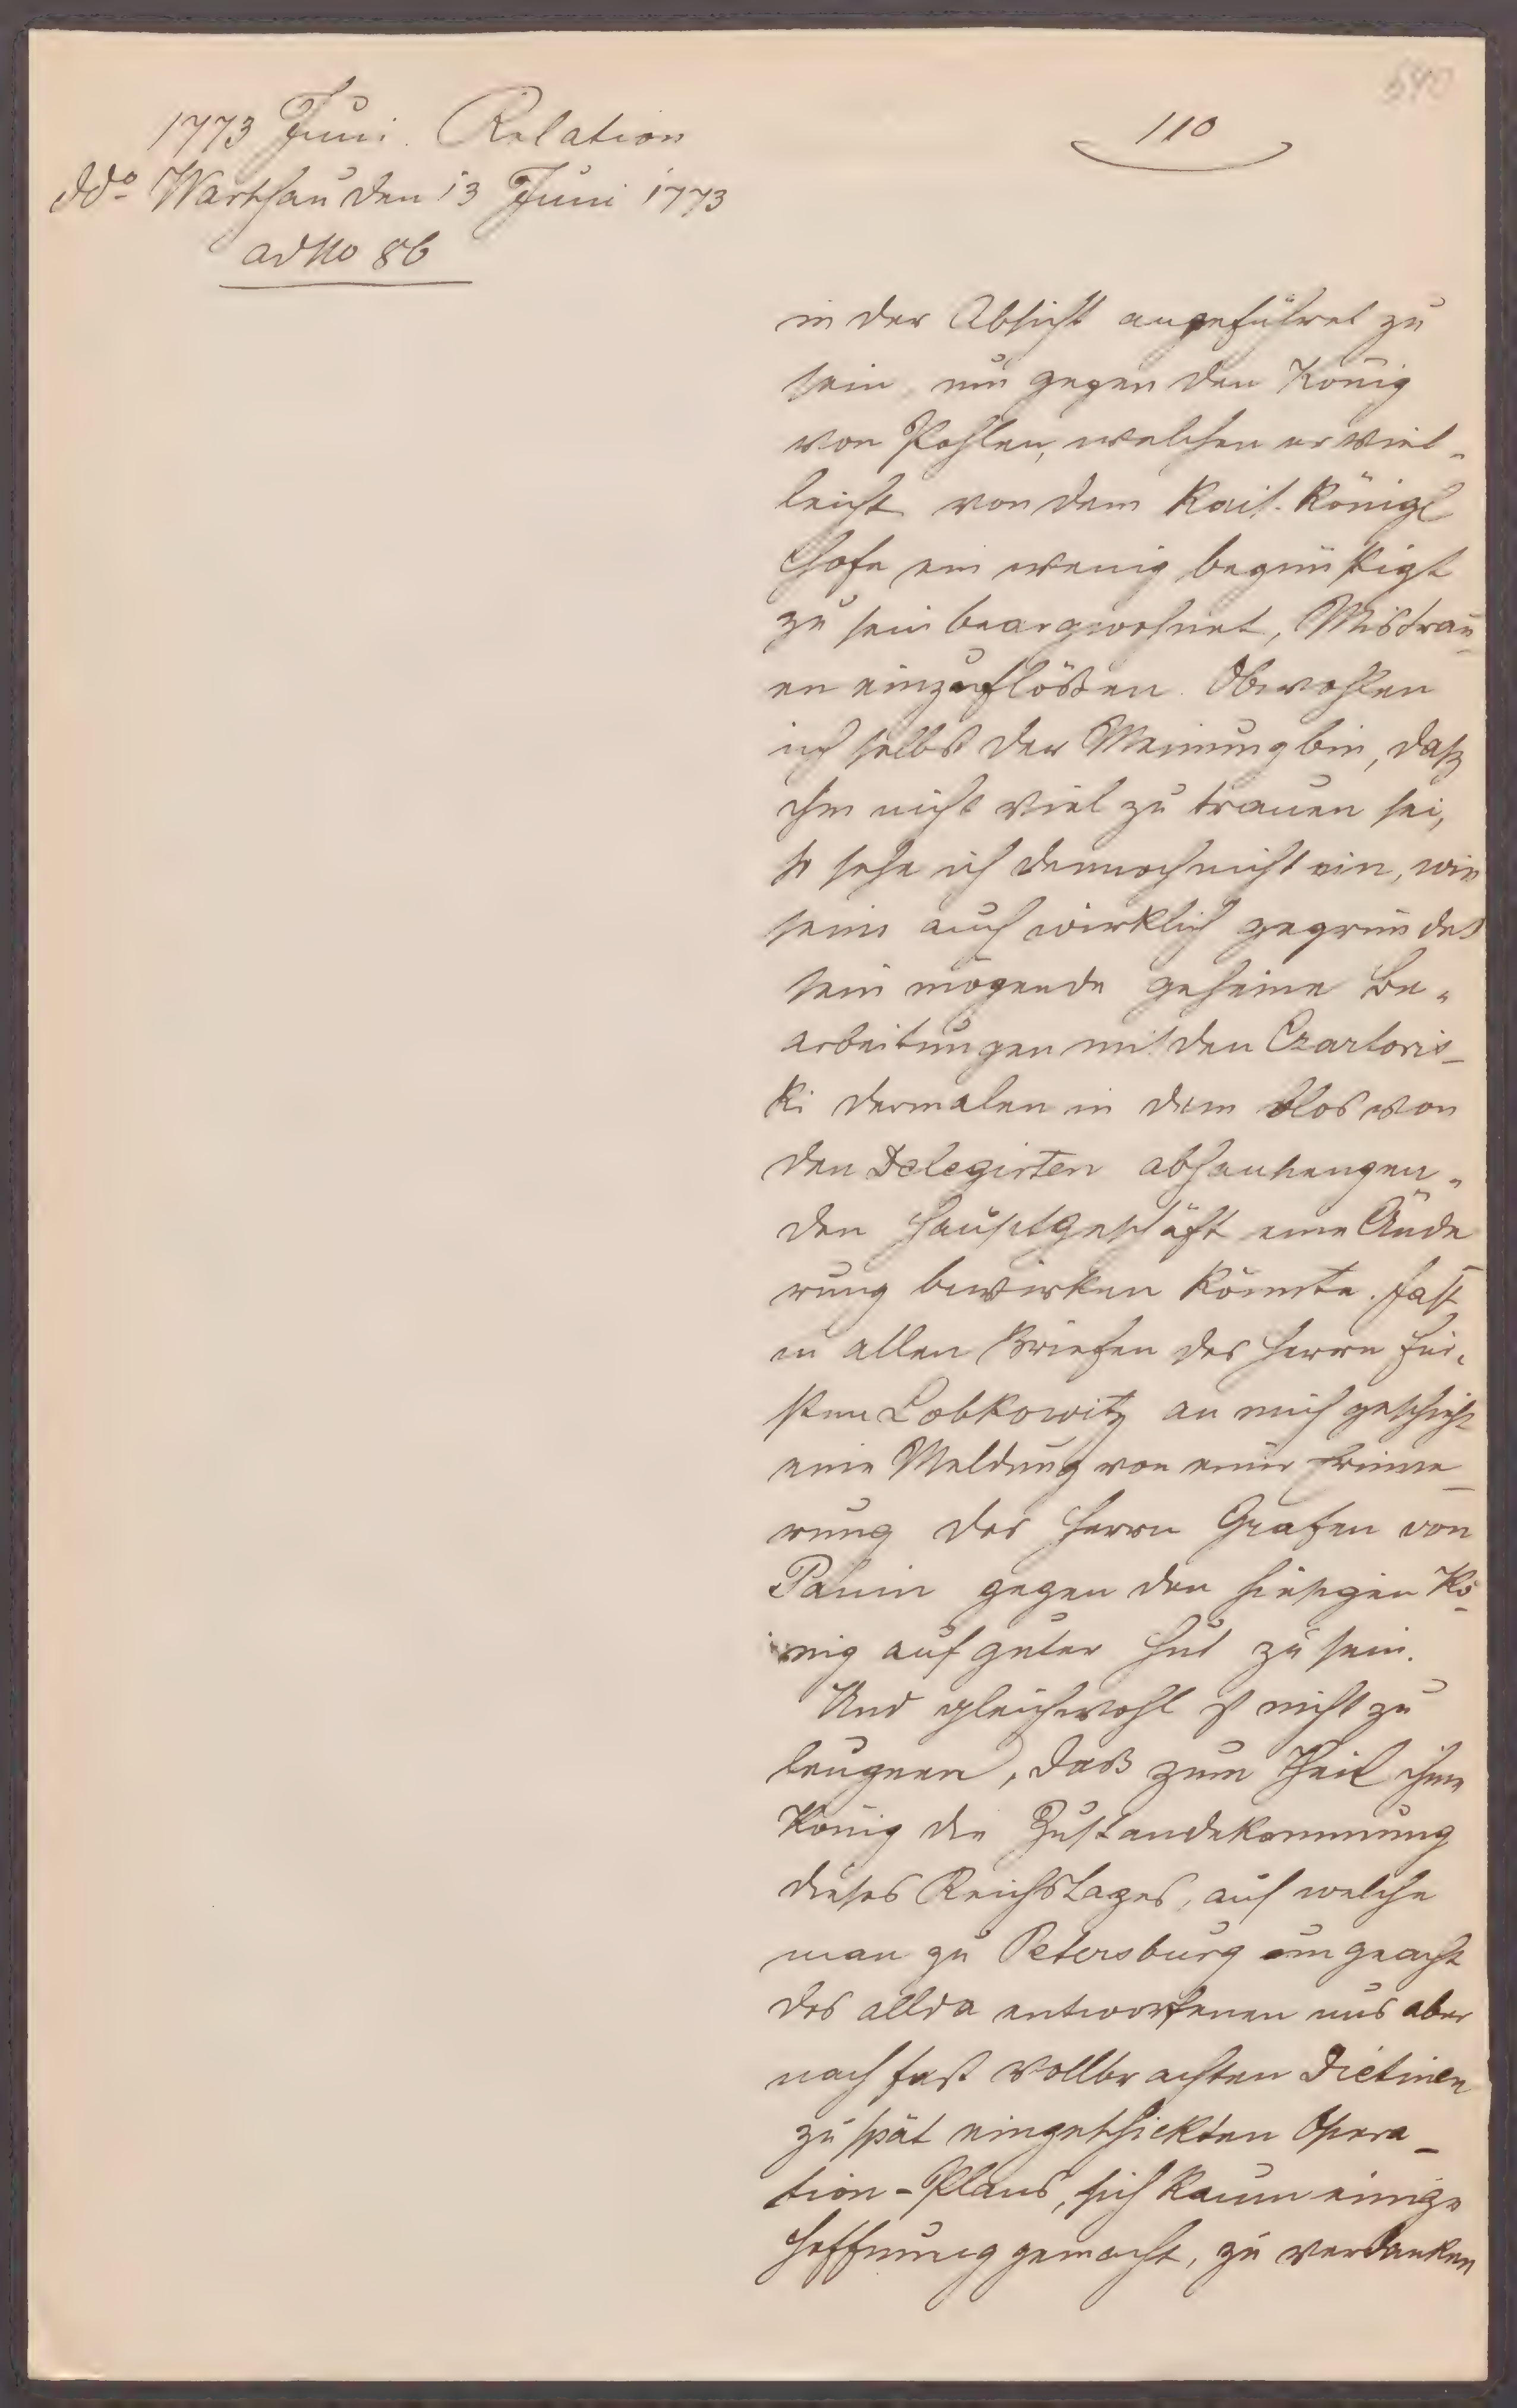 640
110
1773 Juni. Relation
ddo Warschau den 13 Juni 1773
ad No 86
in der Absicht angeführet zu
sein, um gegen den König
von Pohlen, welchen er viel-
leicht von dem Kais. Königl
Hofe ein wenig begünstigt
zu sein beargwohnet, Mistrau-
en einzuflößen. Obwohlen
ich selbst der Meinung bin, daß
ihm nicht viel zu trauen sei,
so sehe ich dennoch nicht ein, wie
seine auch wirklich gegründet
sein mögende geheime Be-
arbeitungen mit den Czartoris-
ki dermalen in dem blos von
den Delegirten abhanhengen-
den Hauptgeschäft eine Ände-
rung bewirken könnte. Fast
in allen Briefen des Herrn Für-
sten Lobkowitz an mich geschieht
eine Meldung von einer Erinne-
rung des Herrn Grafen von
Panin gegen den hiesigen Kö-
nig auf guter Hut zu sein.
Und gleichwohl ist nicht zu
leugnen, daß zum Theil ihm
König die Zustandekommung
dieses Reichstages, auf welche
man zu Petersburg ungeacht
des allda entworfenen uns aber
nach fast vollbrachten Dietinen
zu spät eingeschickten Opera-
tion-Plans, sich kaum einige
Hoffnung gemacht, zu verdanken